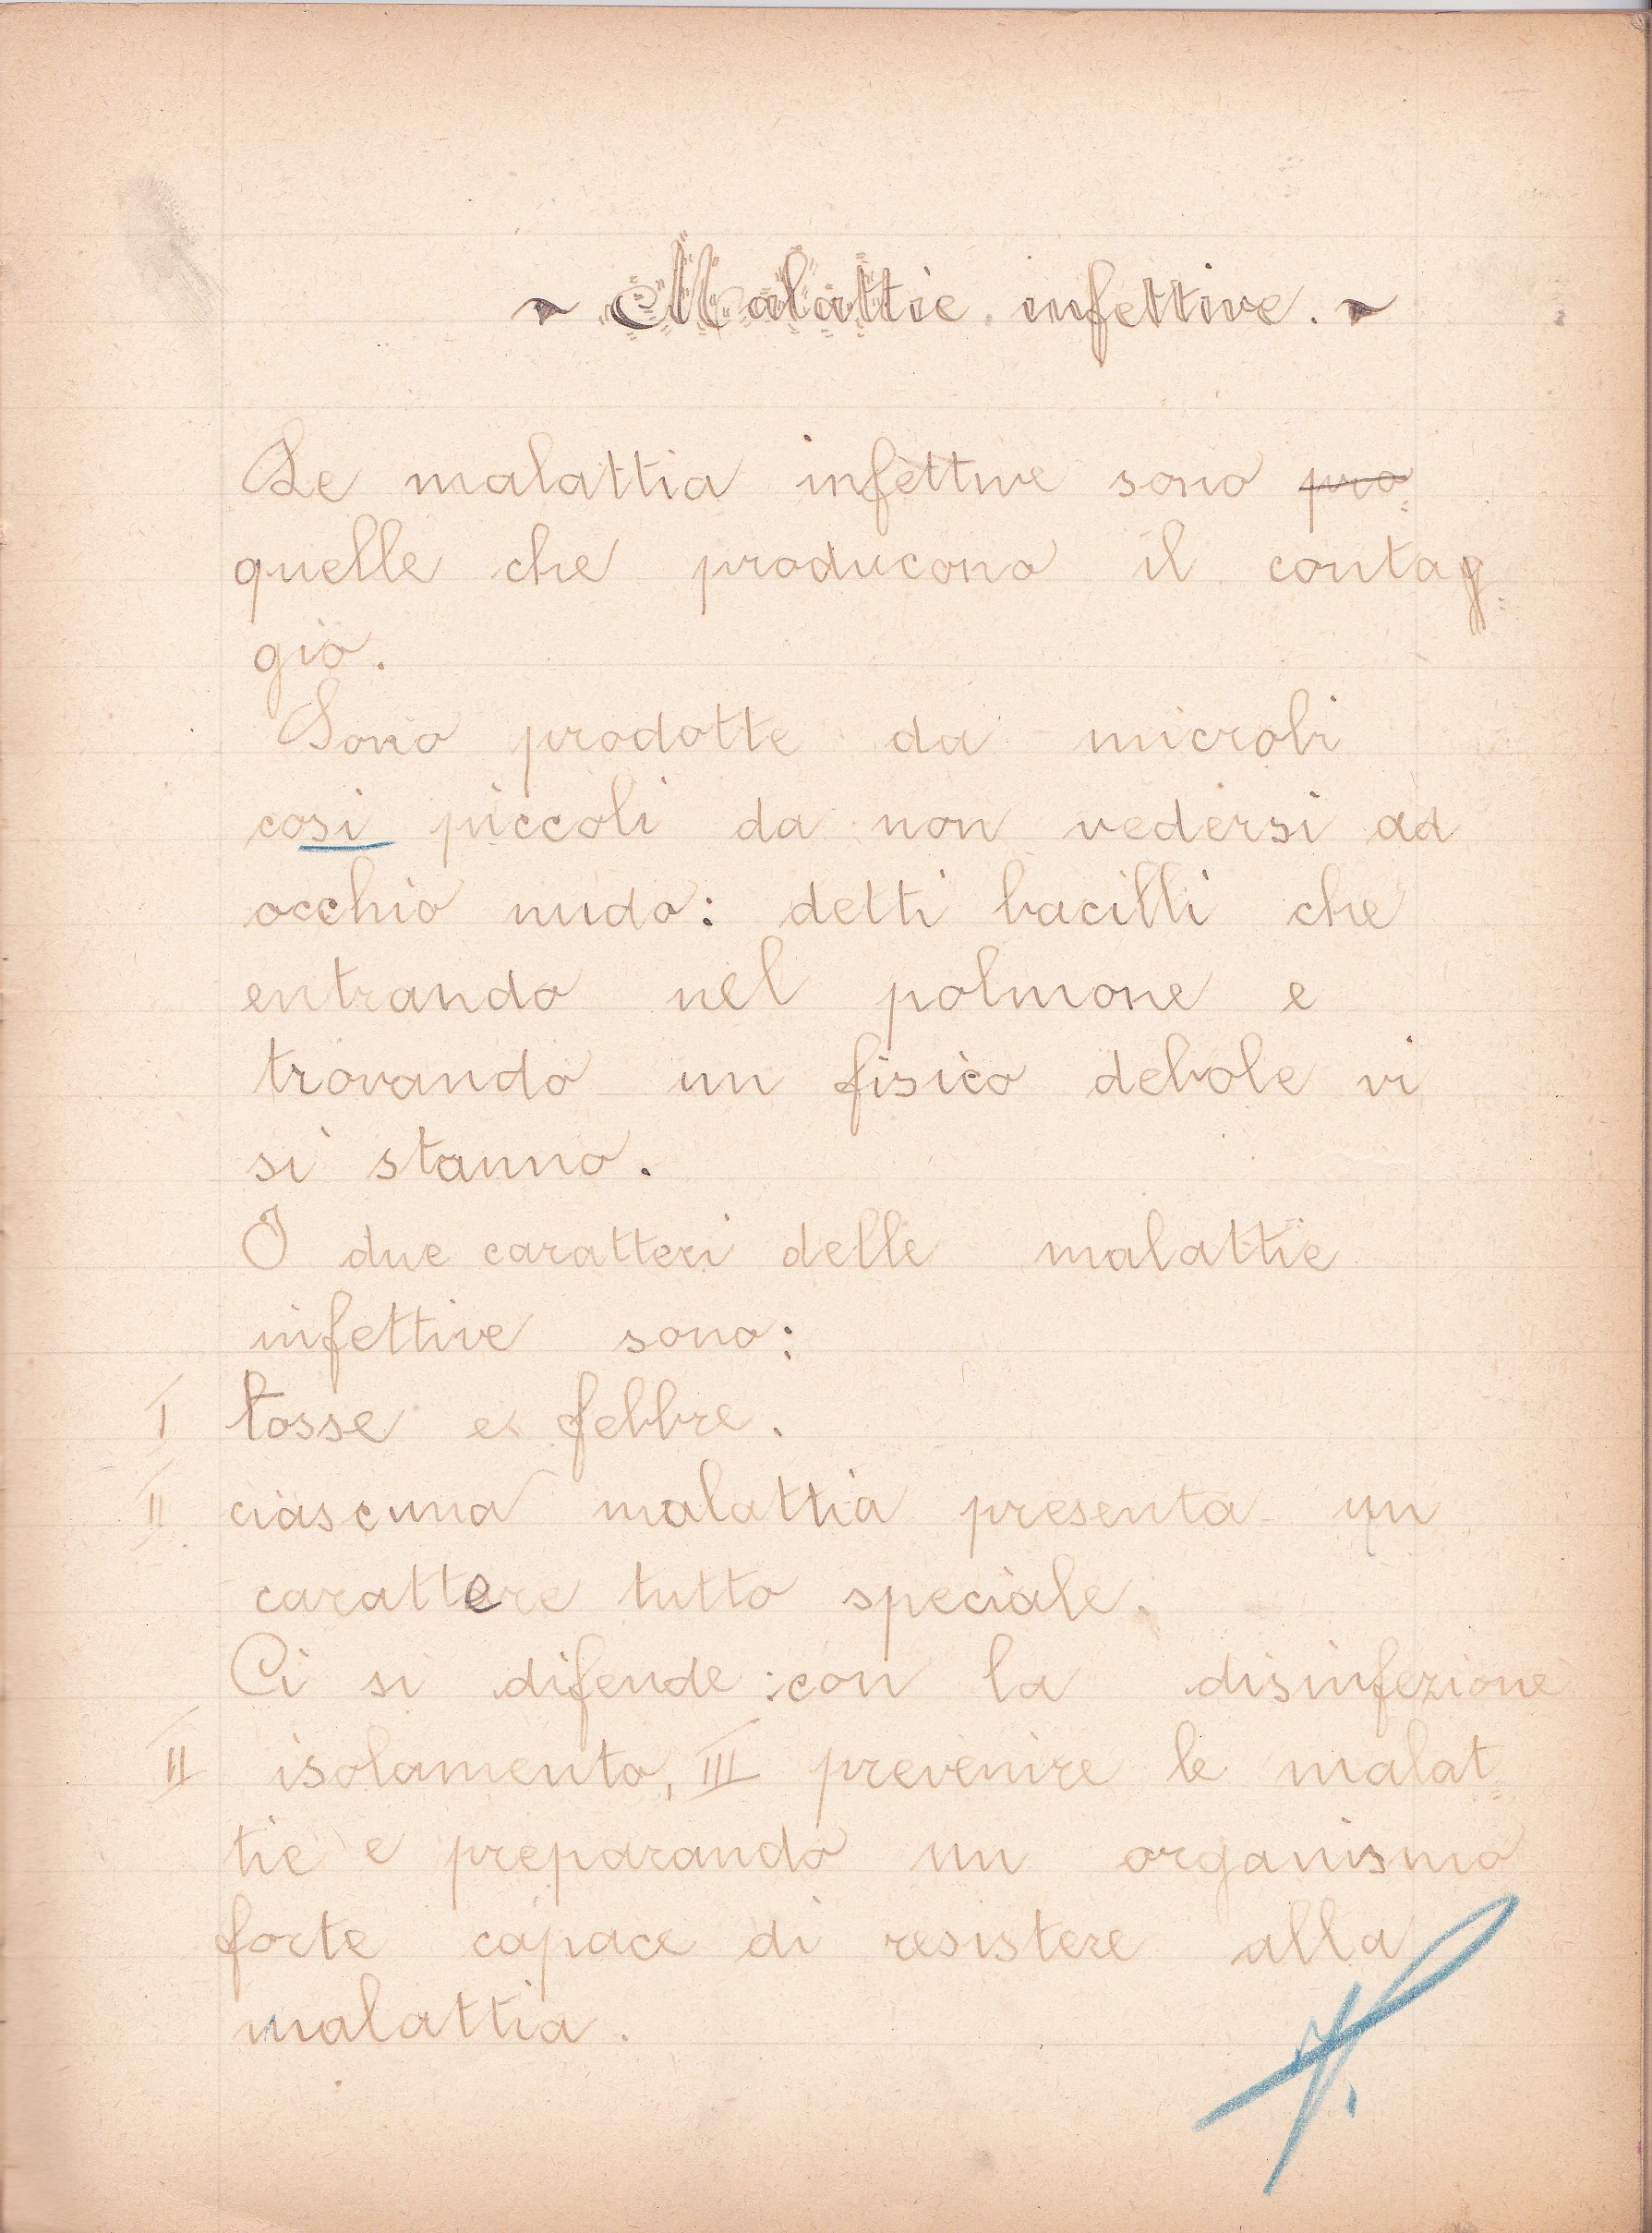 ~ Malattie infettive. ~
Le malattia infettive sono pro=
quelle che producono il contag=
gio.
Sono prodotte da microbi
cosi piccoli da non vedersi ad
occhio nudo: detti bacilli che
entrando nel polmone e
trovando un fisico debole vi
si stanno.
I due caratteri delle malattie
infettive sono:
I tosse e febbre.
II ciascuna malattia presenta un
carattere tutto speciale.
Ci si difende: con la disinfezione
II isolamento, III prevenire le malat=
tie e preparando un organismo
forte capace di resistere alla
malattia.